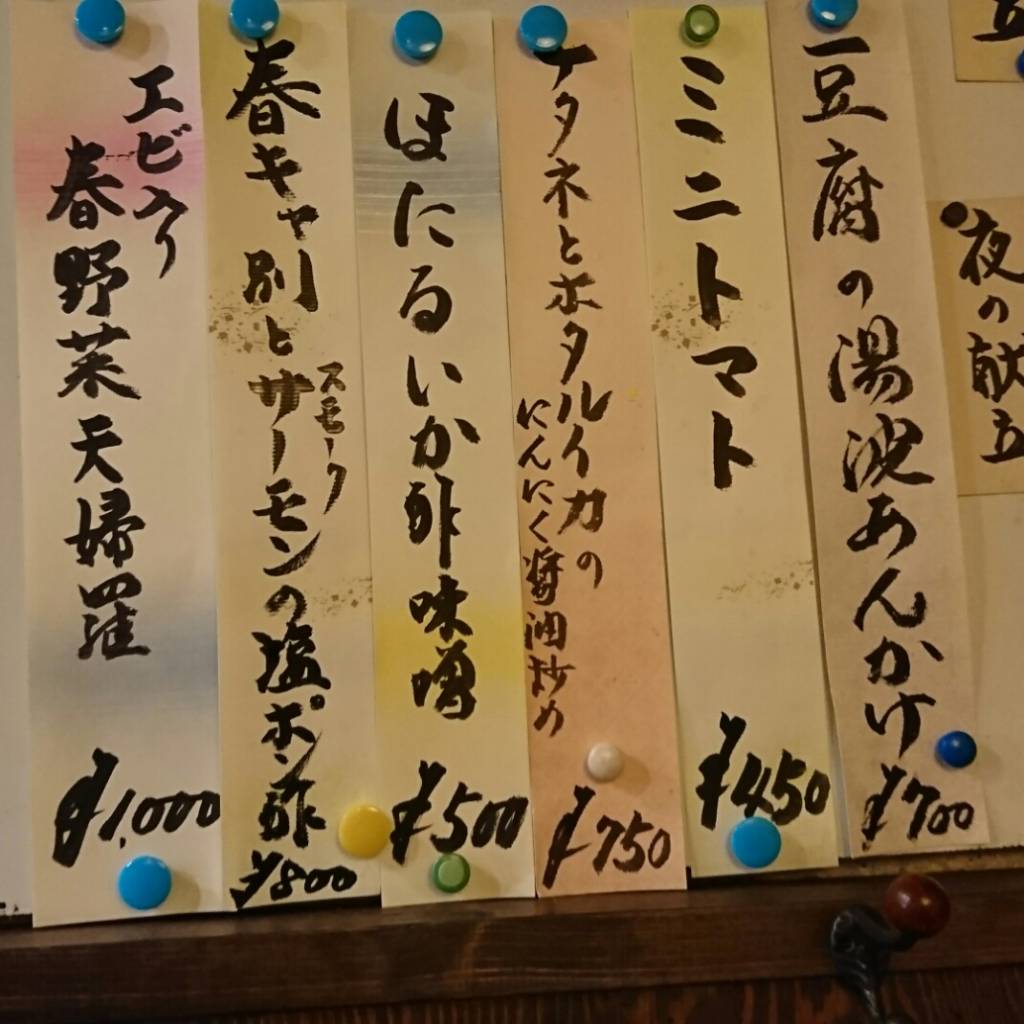 夜の献立
豆腐の湯波あんかけ
¥700
ミニトマト
¥450
ナタネとホタルイカの
にんにく醤油炒め
¥750
ほたるいか酢味噌
¥500
春キャ別とサーモンの塩ポン酢
スモーク
¥800
エビ入り
春野菜天婦羅
¥1,000